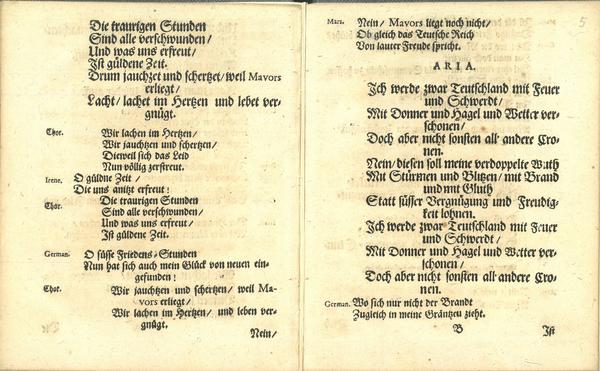 Die traurigen Stunden
Sind alle verschwunden/
Und was uns erfreut/
Jst güldene Zeit.
Drum jauchzet und schertzet/ weil Mavors
erliegt/
Lacht/ lachet im Hertzen und lebet ver-
gnügt.
Chor. Wir lachen im Hertzen/
Wir jauchtzen und schertzen/
Dieweil sich das Leid
Nun völlig zerstreut.
Irene. O güldne Zeit/
Die uns anitzt erfreut!
Chor. Die traurigen Stunden
Sind alle verschwunden/
Und was uns erfreut/
Jst güldene Zeit.
German. O süsse Friedens-Stunden
Nun hat sich auch mein Glück von neuen ein-
gefunden!
Chor. Wir jauchzen und schertzen/ weil Ma-
vors erliegt/
Wir lachen im Hertzen/ und leben ver-
gnügt.
Nein/
5
Mars. Nein/ Mavors liegt noch nicht/
Ob gleich das Teutsche Reich
Von lauter Freude spricht.
ARIA.
Jch werde zwar Teutschland mit Feuer
und Schwerdt/
Mit Donner und Hagel und Wetter ver-
schonen/
Doch aber nicht sonsten all andere Cro-
nen.
Nein/ diesen soll meine verdoppelte Wuth
Mit Stürmen und Blitzen/ mit Brand
und mit Gluth
Statt süsser Vergnügung und Freudig-
keit lohnen.
Jch werde zwar Teutschland mit Feuer
und Schwerdt/
Mit Donner und Hagel und Wetter ver-
schonen/
Doch aber nicht sonsten all andere Cro-
nen.
German. Wo sich nur nicht der Brandt
Zugleich in meine Gräntzen zieht.
B Jst